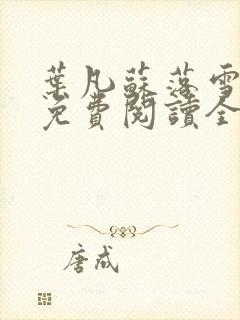 葉凡蘇落雪
免費閱讀全
唐成